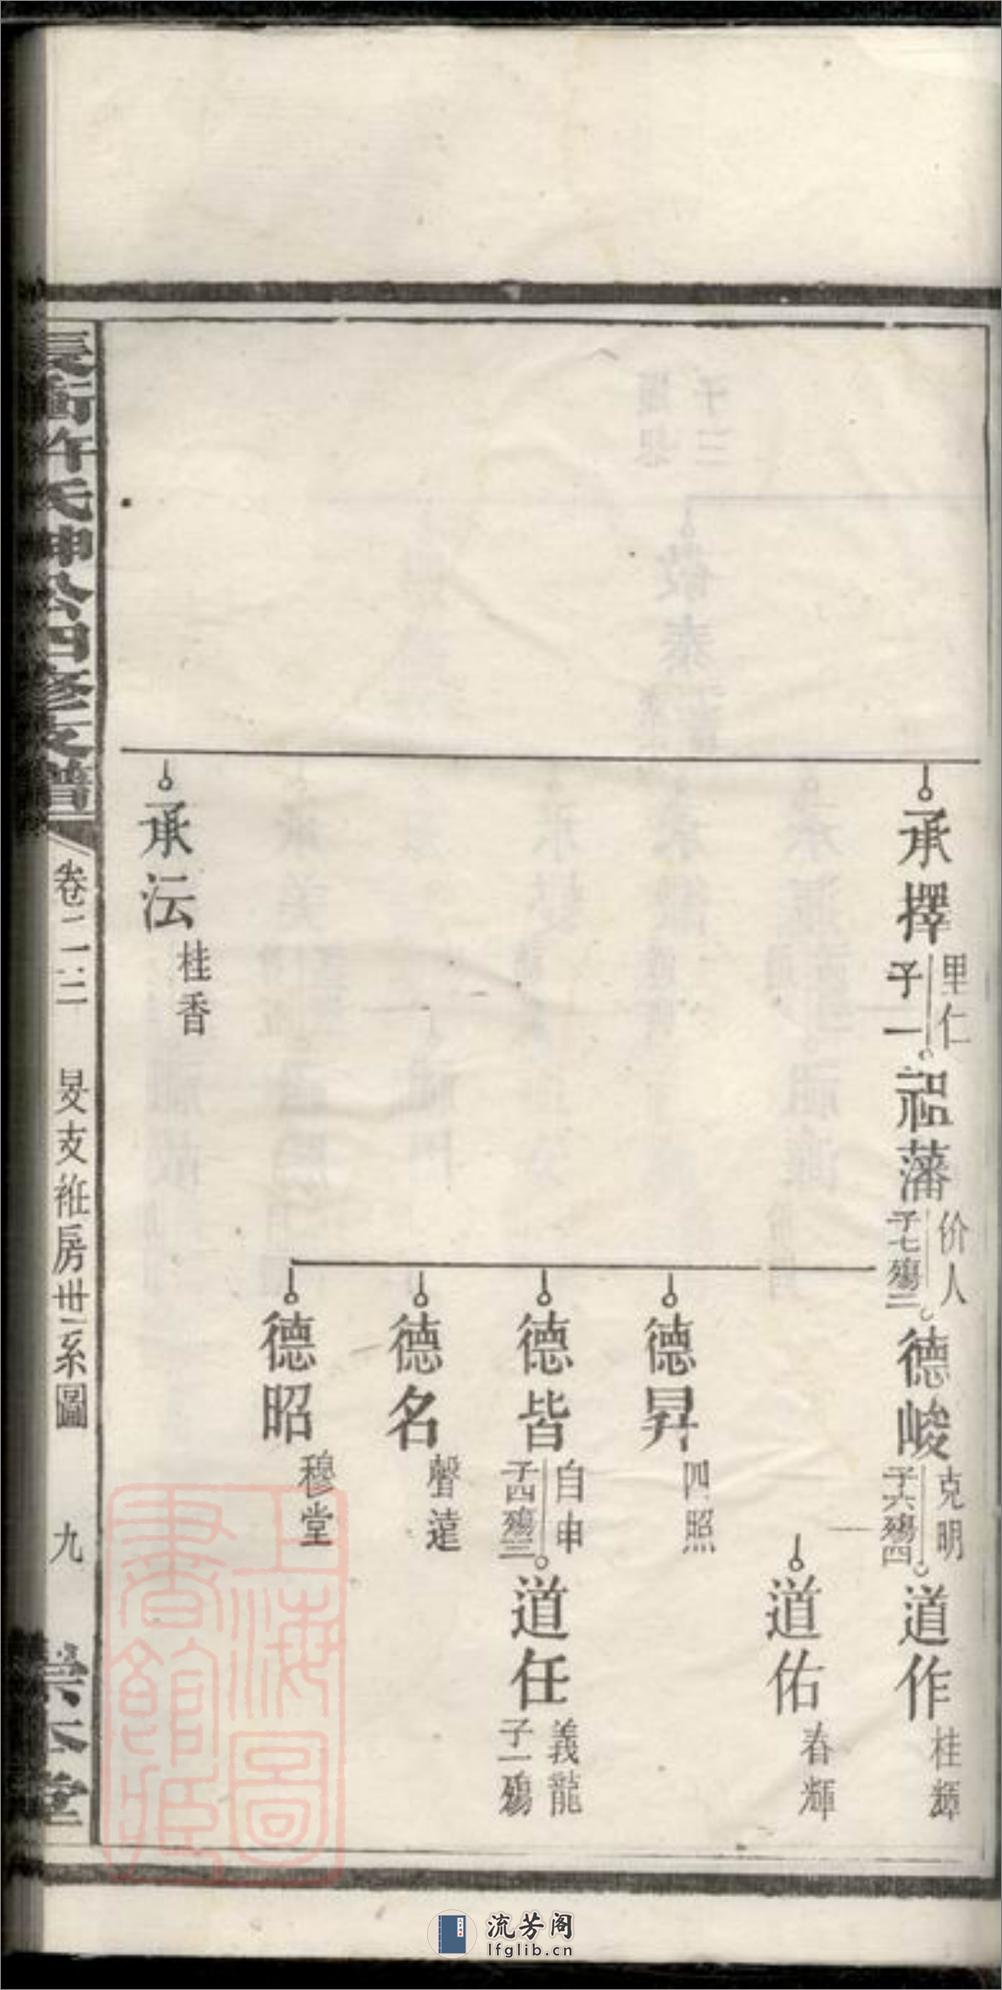 承擇
里仁
子一
祖藩
价人
子七殤二
德峻
克明
子六殤四
道作
桂輝
道佑
春輝
德昇
四照
德皆
自申
子四殤三
道任
義龍
子一殤
德名
聲遠
德昭
穆堂
承沄
桂香
許氏坤公四修支譜
卷二二
旻支祍房世系圖
九
上海圖書館藏
流芳阁
lfglib.cn